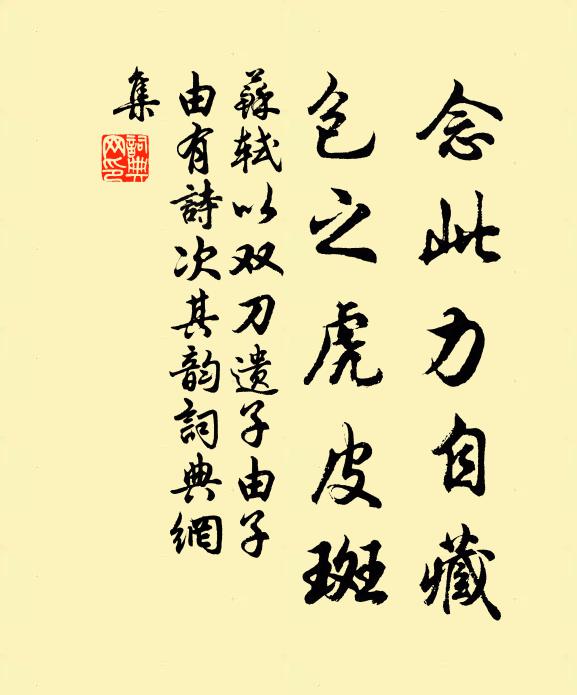 念此力自藏
包之虎皮斑
蘇軾以双刀遗子由子
由有詩次其韵詞典網
集
詞典
网印